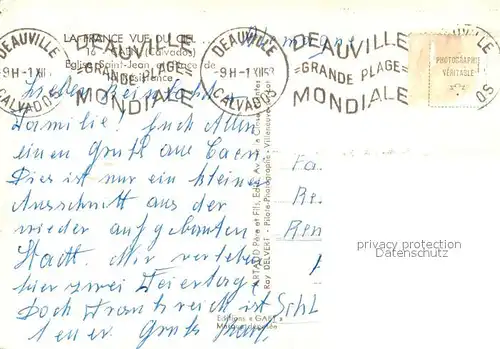 LA FRANCE VUE DU CIEL ...
16 - CAEN (Calvados)
Eglise Saint-Jean
Résistance
Allemagne
DEAUVILLE
9H-1 XII
CALVADOS
DEAUVILLE
=GRANDE PLAGE=
MONDIALE
DEAUVILLE
9H-1 XII 58
CALVADOS
DEAUVILLE
=GRANDE PLAGE=
MONDIALE
PHOTOGRAPHIE
VÉRITABLE
Lieber Reinhold
Familie! Euch Allen
einen Gruß aus Caen.
Dies ist nur ein kleiner
Ausschnitt aus der
wieder aufgebauten
Stadt. Wir verleben
hier zwei Feiertage
Doch Frankreich ist
teuer. Gruß
Fa.
Re.
Ren
Schl
ARTAUD Père et Fils, Edit.
Ray DELVERT - Photo-Photographe - Villeneuve
Editions « GABY »
Marque déposée
privacy protection
Datenschutz